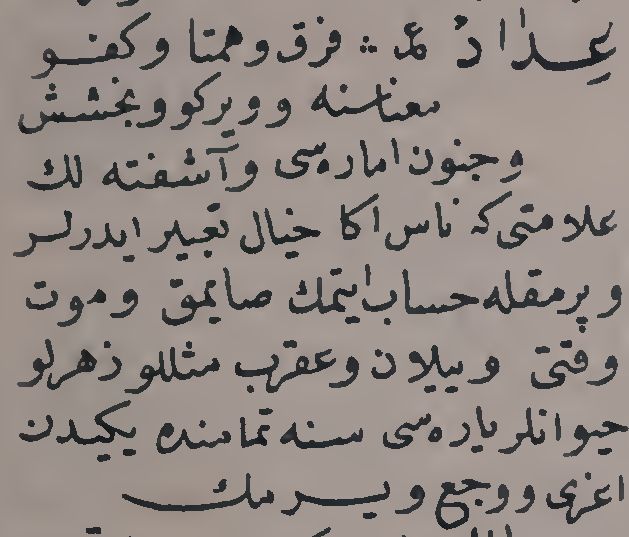 عداد ع ؞ فرق و همتا و كفو
معناسنه و ويركو و بخشش
و جنون اماره سى و آشفته لك
علامتى كه ناس اكا خيال تعبير ايدرلر
و بر مقله حساب ايتمك صايمق و موت
وقتى و ييلان و عقرب مثللو زهرلو
حيوانلر ياره سى سنه تمامنده يكيدن
اغرى و وجع ويرمك